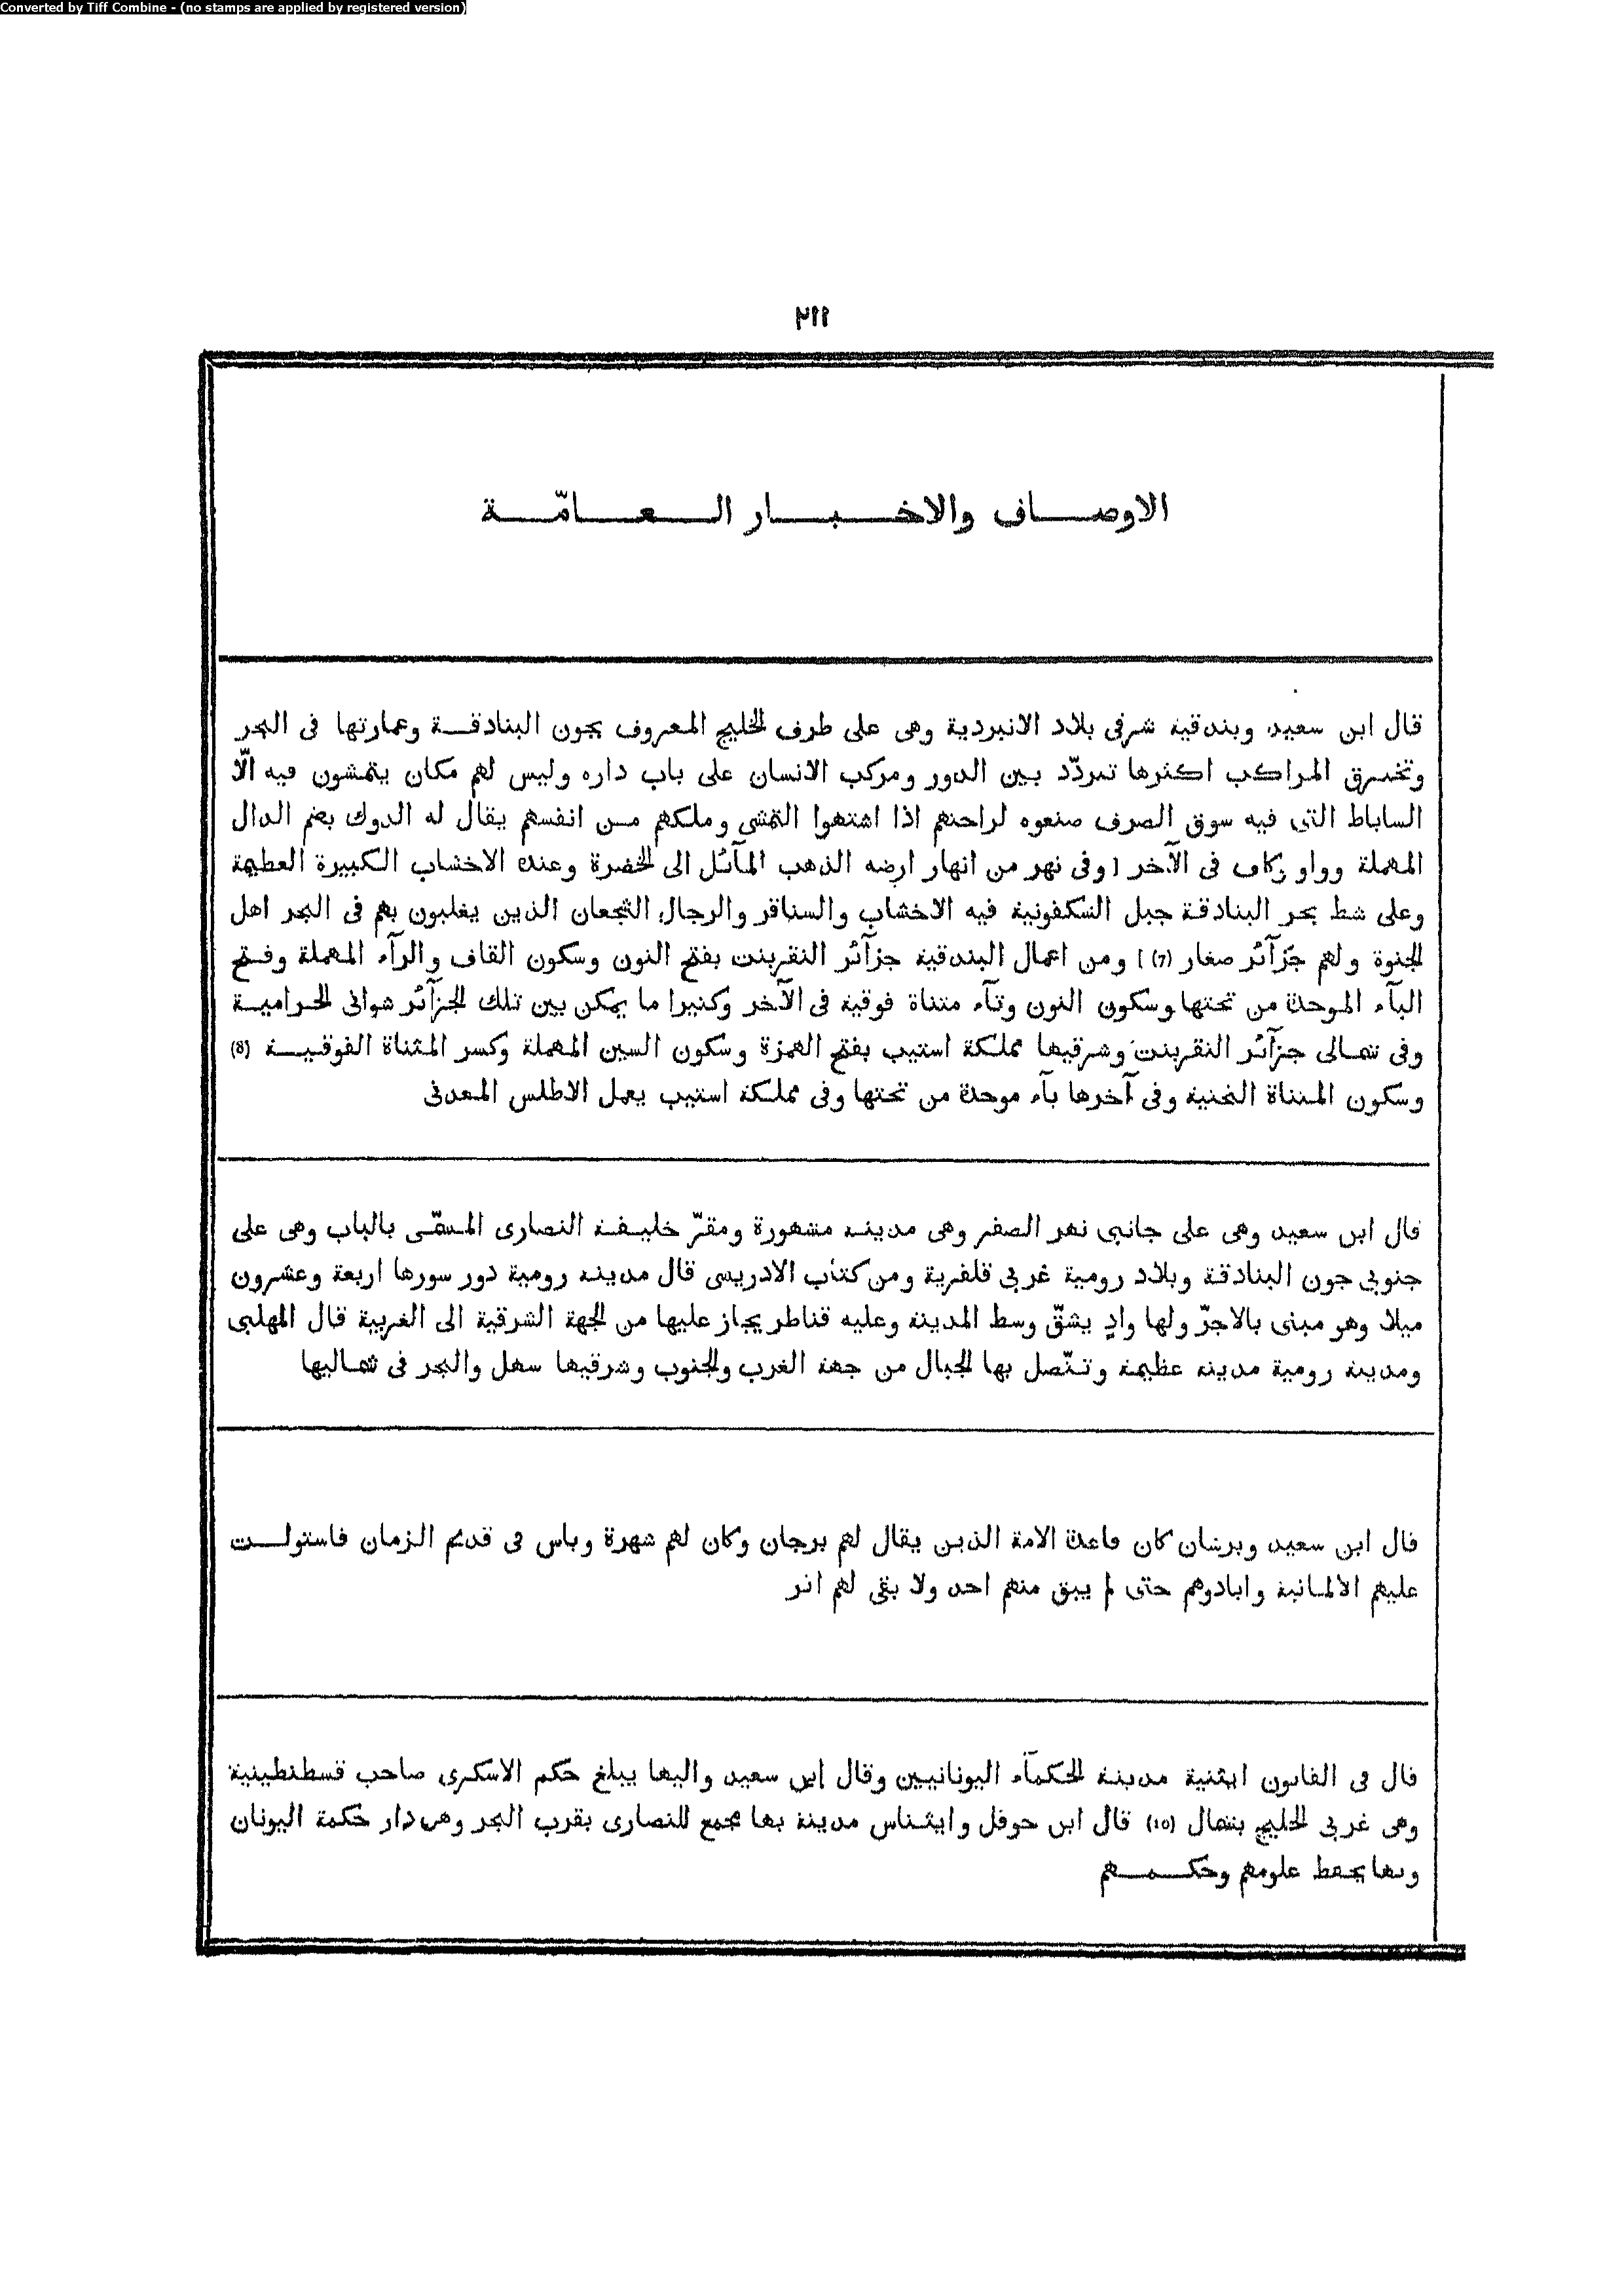 Converted by Tiff Combine - (no stamps are applied by registered version)
٢١١
الاوصاف والاخبار العامّة
قال ابن سعيد وبندقية شرقى بلاد الانبردية وهى على طرف الخليج المعروف بجون البنادقة وعمارتها فى البحر
وتخترق المراكب اكثرها تتردّد بين الدور ومركب الانسان على باب داره وليس لهم مكان يتمشون فيه الّا
الساباط التى فيه سوق الصرف صنعوه لراحتهم اذا اشتهوا التمشى وملكهم من انفسهم يقال له الدوك بضم الدال
المهملة وواو وكاف فى الآخر [وفى نهر من انهار ارضه الذهب المآئل الى الخضرة وعنده الاخشاب الكبيرة العظيمة
وعلى شط بحر البنادقة جبل السكفونية فيه الاخشاب والسناقر والرجال الشجعان الذين يغلبون بهم فى البحر اهل
الجنوة ولهم جزآئر صغار (7)] ومن اعمال البندقية جزآئر النقربنت بفتح النون وسكون القاف والرآء المهملة وفتح
البآء الموحدة من تحتها وسكون النون وتآء مثناة فوقية فى الآخر وكثيرا ما يمكن بين تلك الجزآئر شوانى الحرامية
وفى شمالى جزآئر النقربنت وشرقيها مملكة استيب بفتح الهمزة وسكون السين المهملة وكسر المثناة الفوقية (8)
وسكون المثناة التحتية وفى آخرها بآء موحدة من تحتها وفى مملكة استيب يعمل الاطلس المعدنى
قال ابن سعيد وهى على جانبى نهر الصفر وهى مدينة مشهورة ومقرّ خليفة النصارى المسمّى بالباب وهى على
جنوبى جون البنادقة وبلاد رومية غربى قلفرية ومن كتاب الادريسى قال مدينة رومية دور سورها اربعة وعشرون
ميلا وهو مبنى بالاجرّ ولها وادٍ يشقّ وسط المدينة وعليه قناطر يجاز عليها من الجهة الشرقية الى الغربية قال المهلبى
ومدينة رومية مدينة عظيمة وتتّصل بها الجبال من جهة الغرب والجنوب وشرقيها سهل والبحر فى شماليها
قال ابن سعيد وبرشان كان قاعدة الامة الذين يقال لهم برجان وكان لهم شهرة وباس فى قديم الزمان فاستولت
عليهم الالمانية وابادوهم حتى لم يبق منهم احد ولا بقى لهم اثر
قال فى القانون ايثنية مدينة الحكمآء اليونانيين وقال ابن سعيد واليها يبلغ حكم الاسكرى صاحب قسطنطينية
وهى غربى الخليج بشمال (10) قال ابن حوقل وايثناس مدينة بها مجمع للنصارى بقرب البحر وهى دار حكمة اليونان
وبها يحفظ علومهم وحكمهم